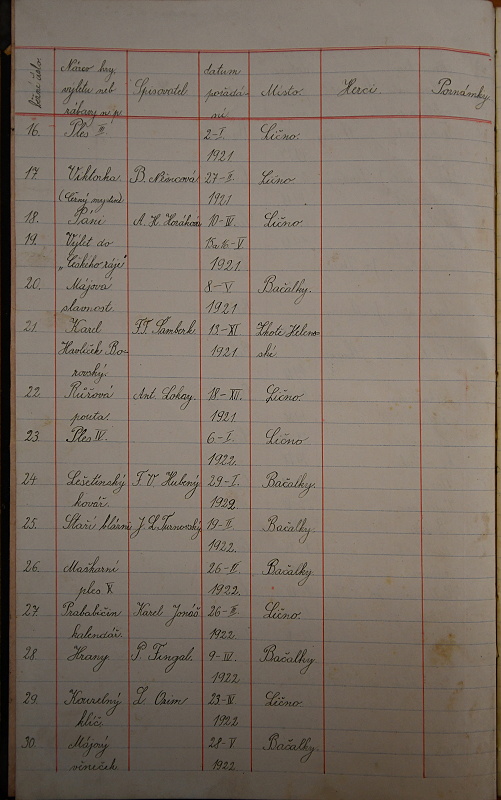 běžné číslo
Název hry,
výletu neb
zábavy a p.
Spisovatel
datum
pořádá-
ní
Místo
Herci.
Poznámky
16. Ples III 2-I. Lično.
1921
17. Viktorka. B. Němcová 27-II. Lično
(Černý myslivec) 1921
18. Páni A. K. Horáková 10-IV. Lično
19. Výlet do 15a16-V.
"Českého ráje" 1921.
20. Májová 8-V Bačálky.
slavnost. 1921
21. Karel F.F. Šamberk. 13-XI. Lhota Helen-
Havlíček Bo- 1921 ské
rovský.
22. Růžová Ant. Lokay. 18-XII. Lično.
pouta. 1921
23. Ples IV. 6-I. Lično
1922.
24 Lešetínský F. V. Hubený 29-I. Bačálky.
kovář. 1922.
25. Staří blázni J. L. Turnovský 19-II Bačálky.
1922.
26. Maškarní 26-II. Bačálky
ples. V 1922.
27. Prababiččin Karel Jonáš 26-III. Lično.
kalendář. 1922.
28. Hrany. P. Fingal. 9-IV. Bačálky
1922
29. Kouzelný L. Ozim 23-IV Lično.
klíč. 1922
30. Májový 28-V Bačálky.
víneček. 1922